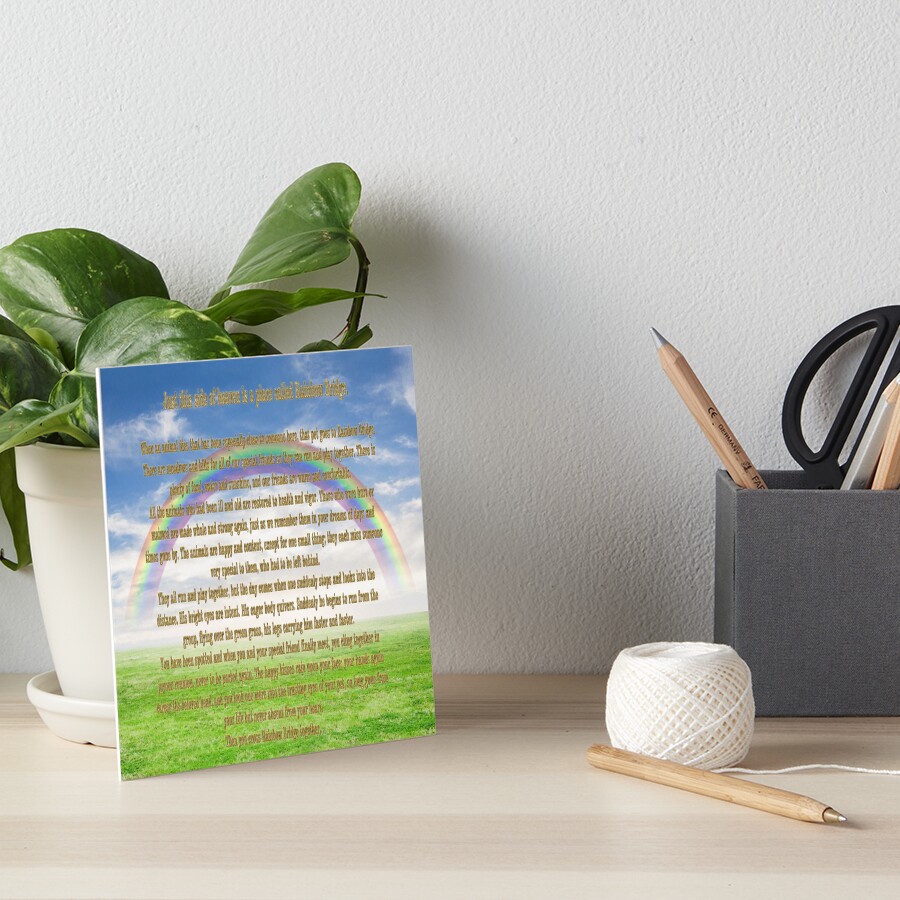 Just this side of heaven is a place called Rainbow Bridge.
When an animal dies that has been especially close to someone here, that pet goes to Rainbow Bridge.
There are meadows and hills for all of our special friends so they can run and play together. There is
plenty of food, water and sunshine, and our friends are warm and comfortable.
All the animals who had been ill and old are restored to health and vigor. Those who were hurt or
maimed are made whole and strong again, just as we remember them in our dreams of days and
times gone by. The animals are happy and content, except for one small thing; they each miss someone
very special to them, who had to be left behind.
They all run and play together, but the day comes when one suddenly stops and looks into the
distance. His bright eyes are intent. His eager body quivers. Suddenly he begins to run from the
group, flying over the green grass, his legs carrying him faster and faster.
You have been spotted and when you and your special friend finally meet, you cling together in
joyous reunion, never to be parted again. The happy kisses rain upon your face; your hands again
caress the beloved head, and you look once more into the trusting eyes of your pet, so long gone from
your life but never absent from your heart.
Then you cross Rainbow Bridge together.
CE
GERMANY
FAB